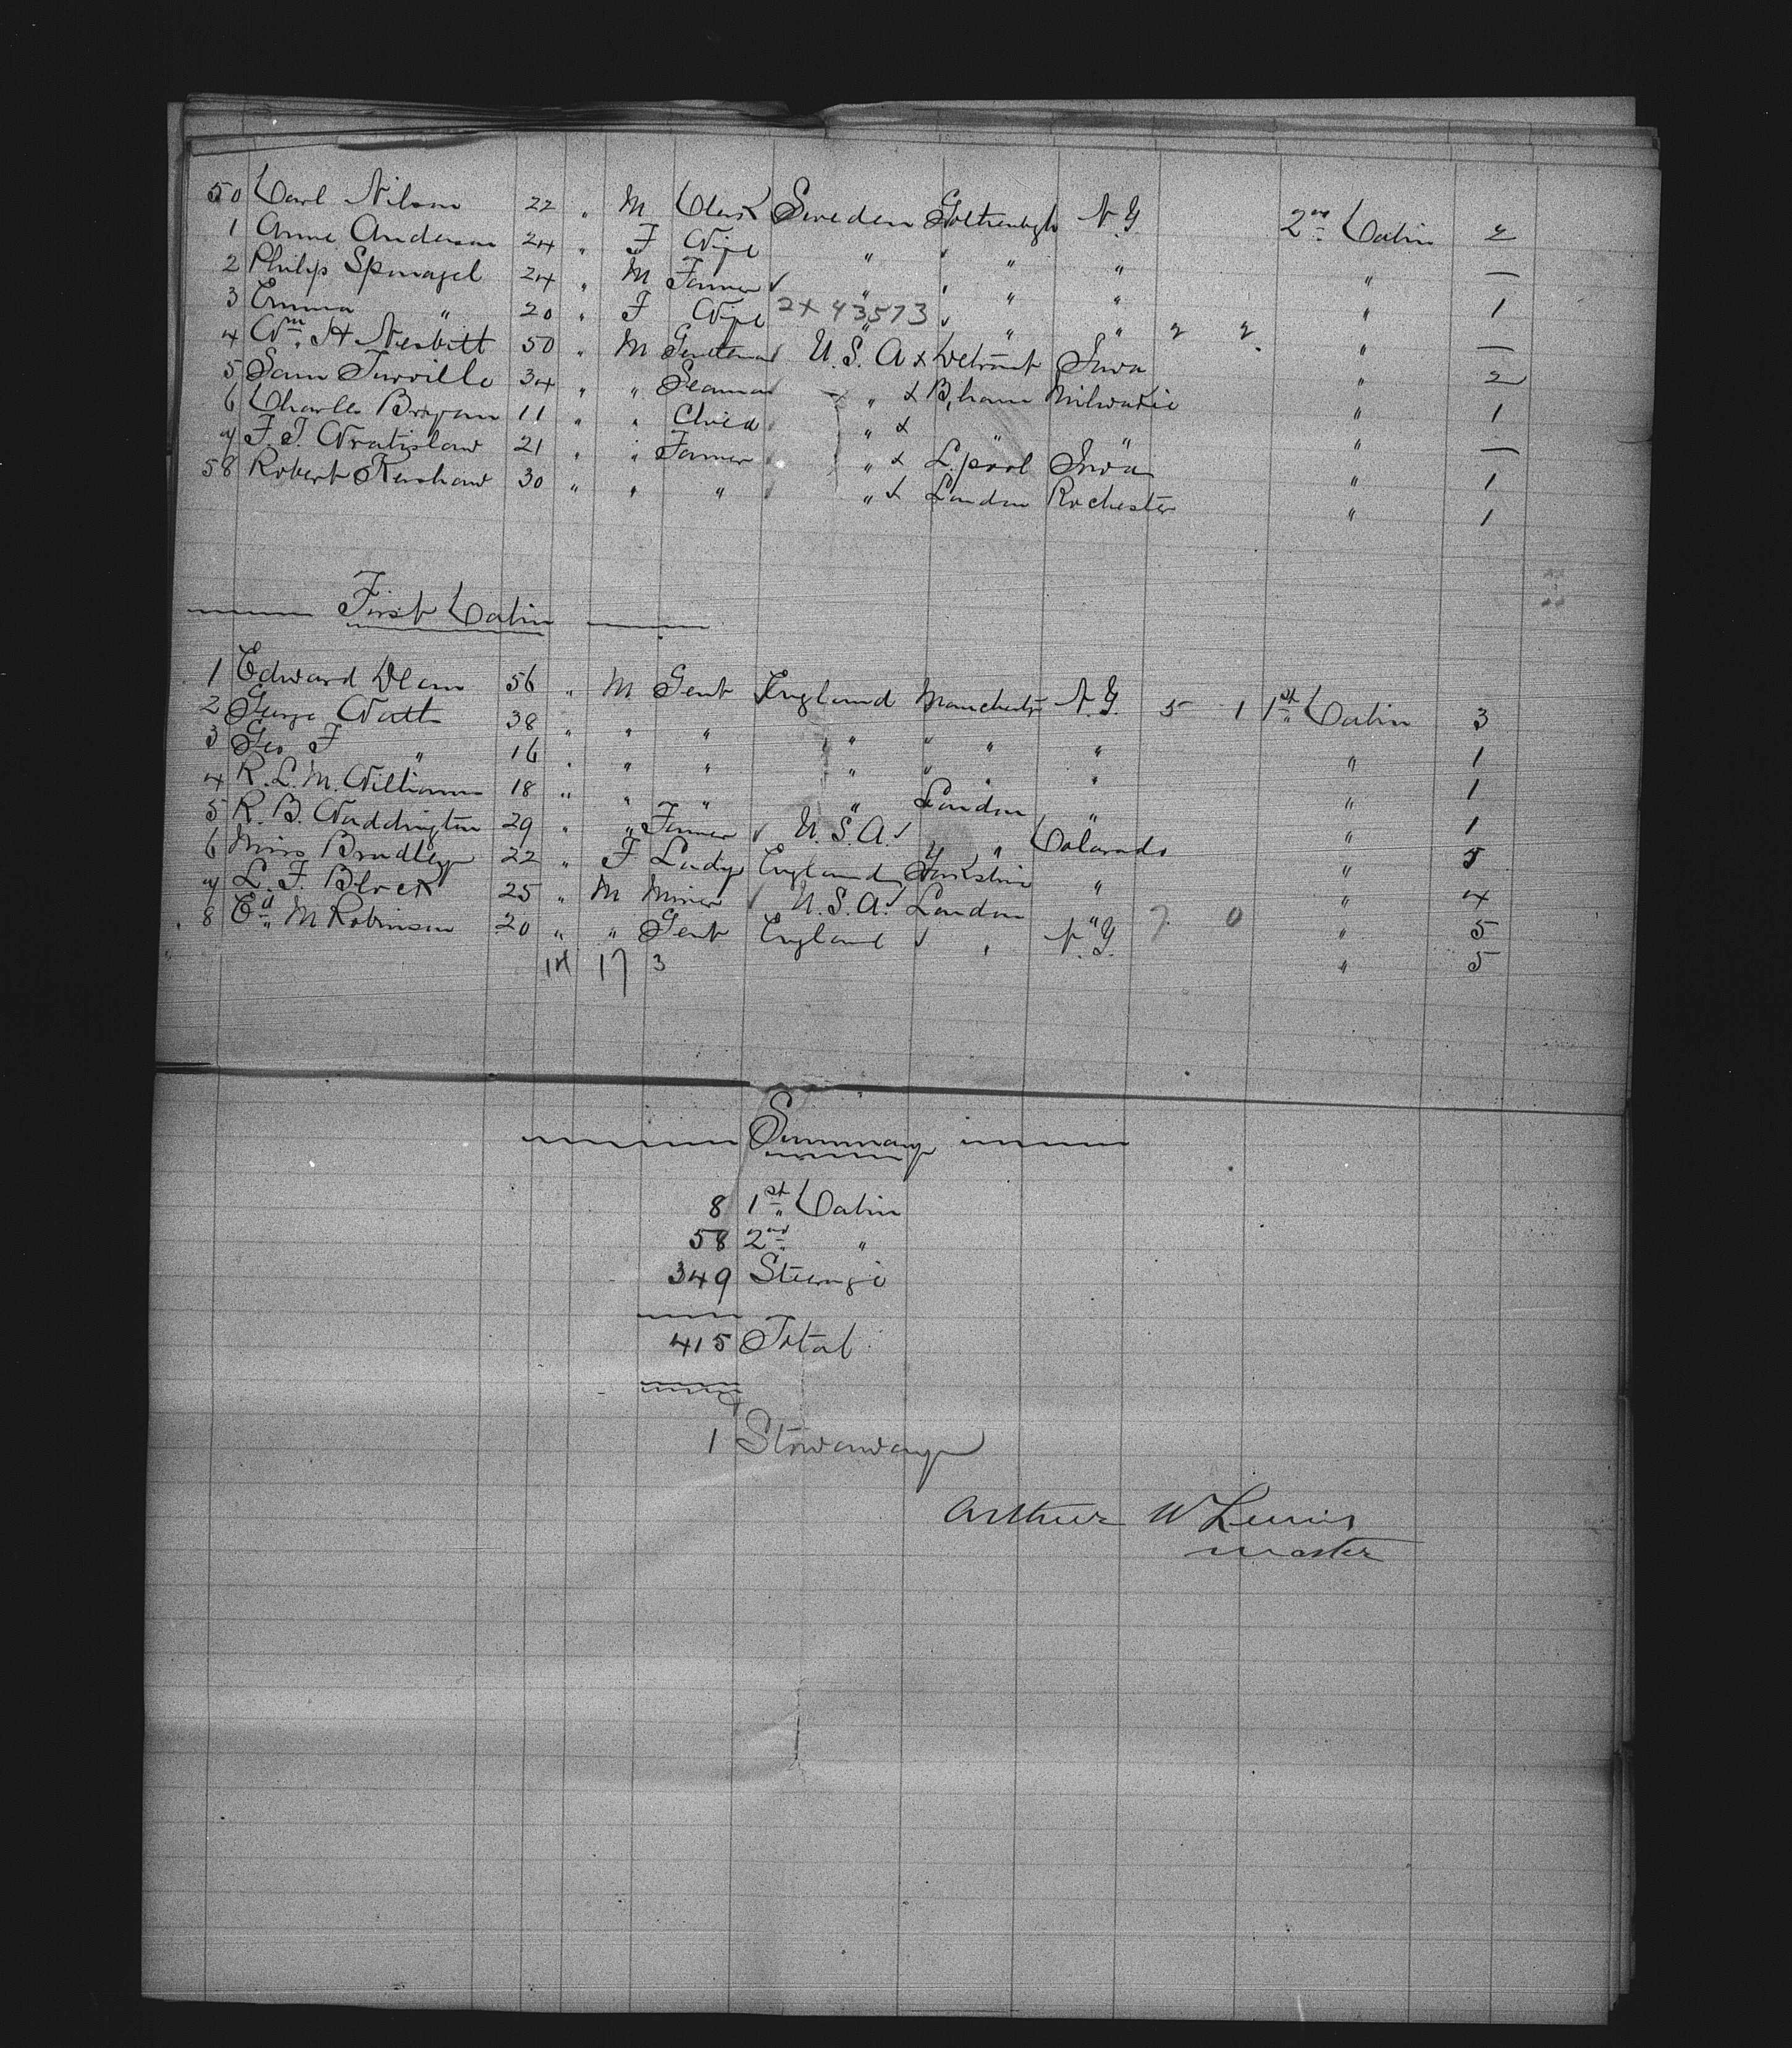 50 Carl Nilson 22 " M Clerk Sweden Gothenbgh N.Y. 2nd Cabin 2
1 Anne Anderson 24 " F Wife " " " " —
2 Philip Spmagel 24 " M Farmer " " " " 1
3 Emma " 20 " F Wife 2x43573 " " " " —
4 Wm H Nesbitt 50 " M Gentleman U.S.A x Detroit Iowa " 2
5 Sam Turville 34 " " Seaman " x B,ham Milwakie " 1
6 Charles Brigam 11 " " Child " x " " " —
7 F. J. Wratislaw 21 " " Farmer " x L.pool Iowa " 1
58 Robert Kershaw 30 " " " " x London Rochester " 1
First Cabin
1 Edward Dean 56 " M Gent England Manchester N.Y. 5 1 1st Cabin 3
2 George Watt 38 " " " " " " " 1
3 Geo F " 16 " " " " " " " 1
4 R. L. M. Williams 18 " " " " London " " 1
5 R. B. Waddington 29 " " Farmer U.S.A. " Colorado " 5
6 Miss Bradley 22 " F Lady England Yorkshire " " 4
7 L. F. Block 25 " M Miner U.S.A. London " 7 0 " 5
8 Ed M Robinson 20 " " Gent England " N.Y. " 5
14 17 3
Summary
8 1st Cabin
58 2nd "
349 Steerage
415 Total
1 Stowaway
Arthur W Lewis
master